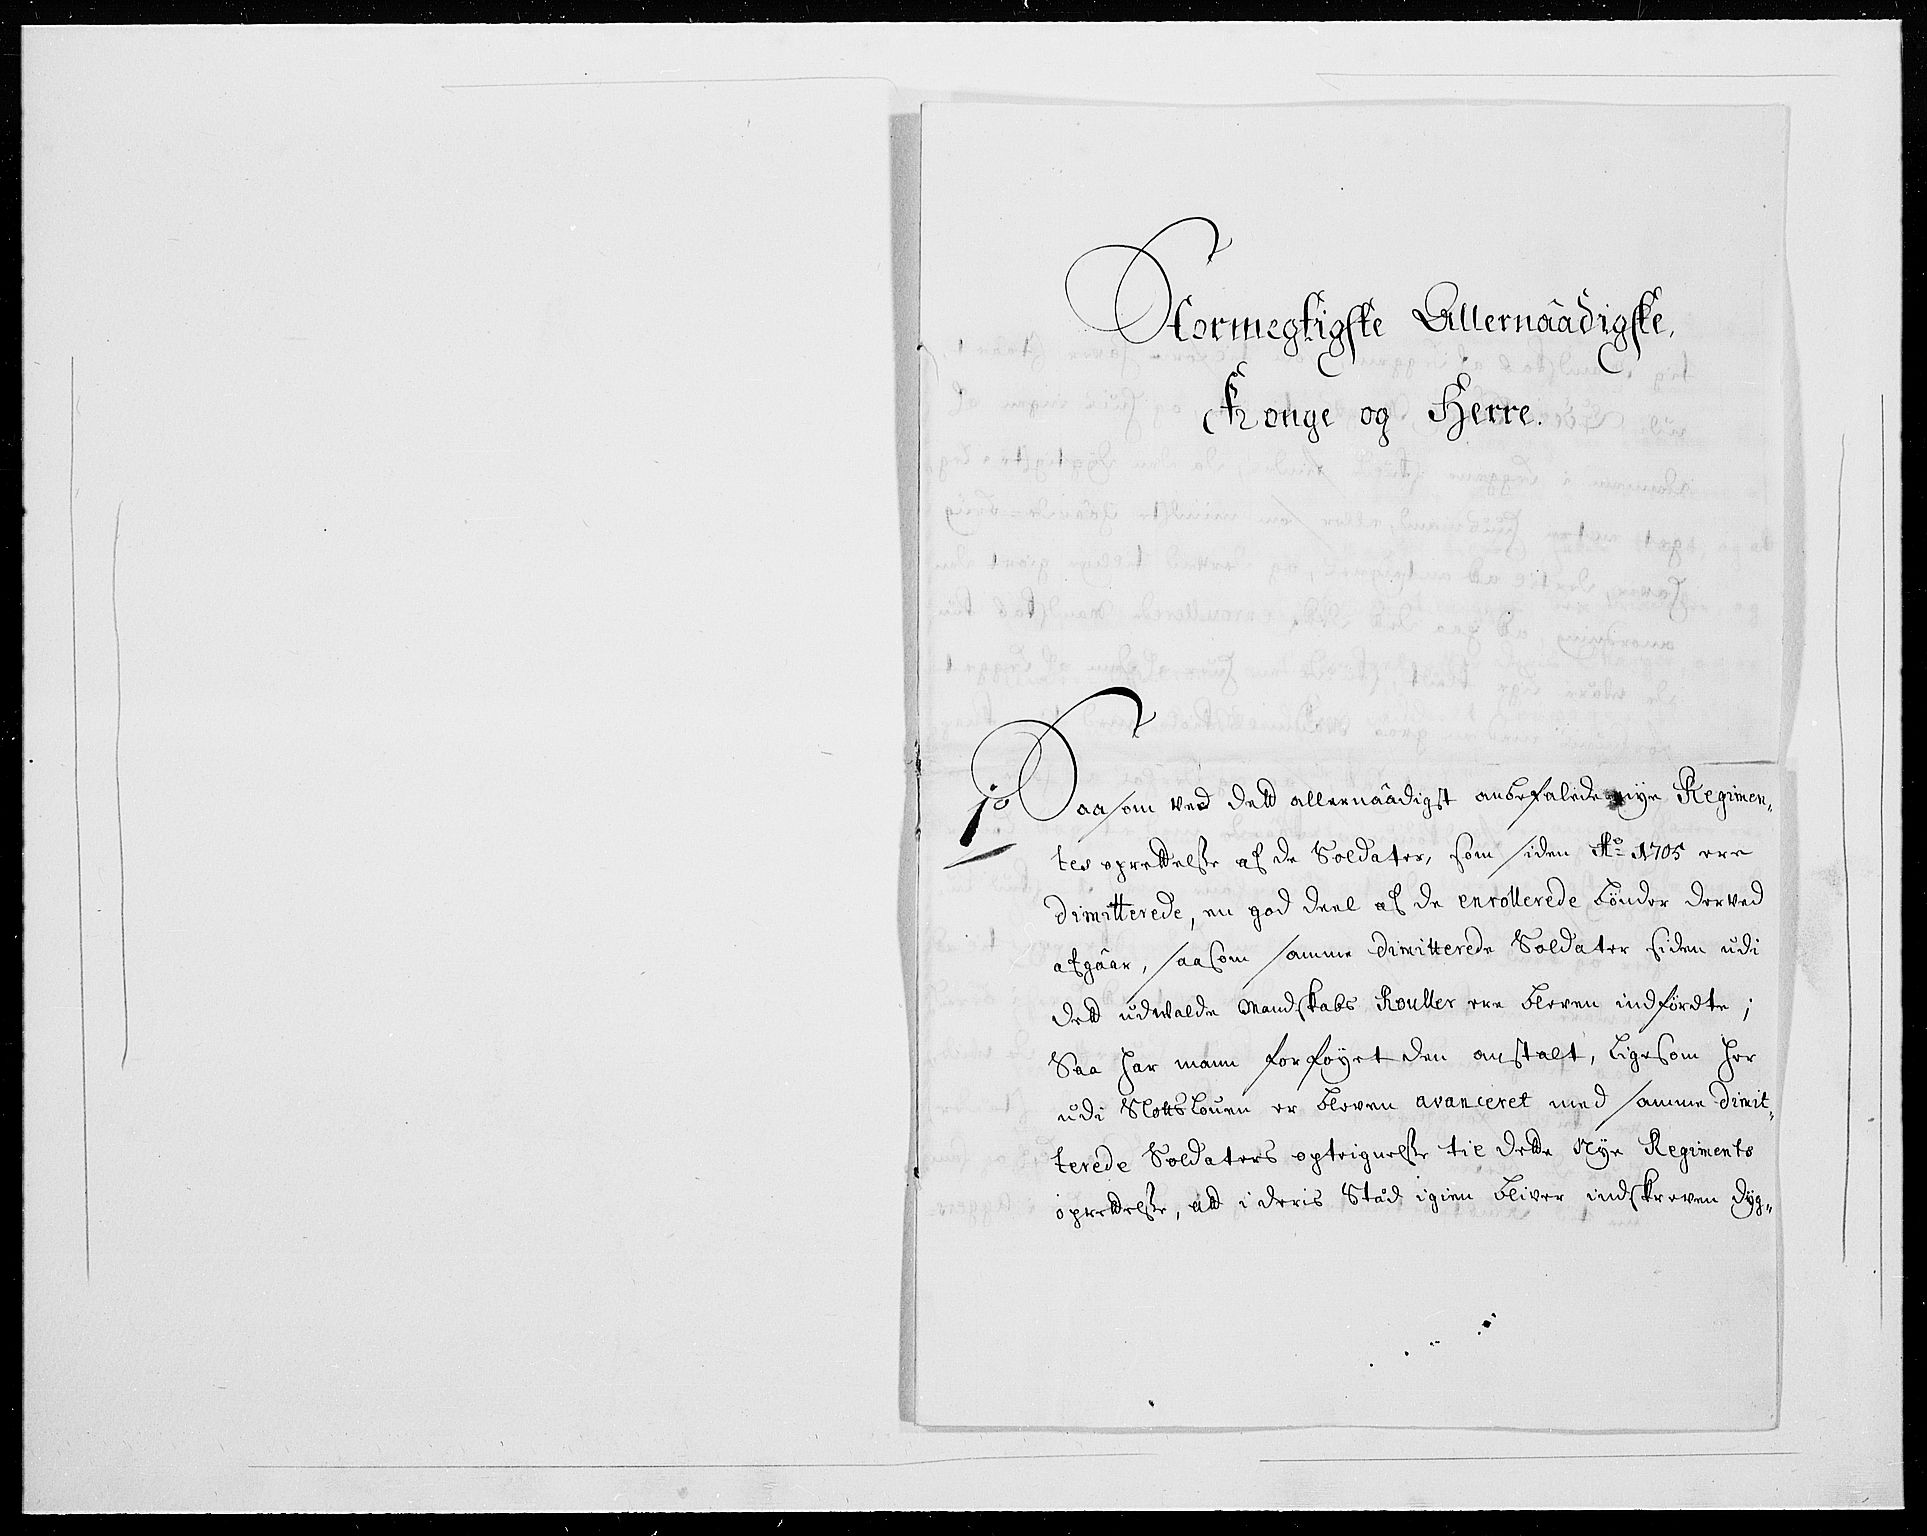 Stormegtigste Allernaadigste,
Konge og Herre.
1o Saasom ved dett allernaadigst anbefalede nye Regimen,,
tes oprettelsse af de Soldater, som siden Ao 1705 ere
dimitterede, en god deel af de enrollerede bønder derved
afgaar, saasom samme dimitterede Soldater siden udi
dett udwalde Mandskabs Rouller ere bleven indførdte;
Saa har mann forføyet den anstalt, ligesom her
udi Slottslouen er bleven avanceret med samme dimit,,
terede Soldaters opteignelsse til dette Nye Regiments
oprettelsse, att i deris Stæd igien bliver indskreven dyg,,